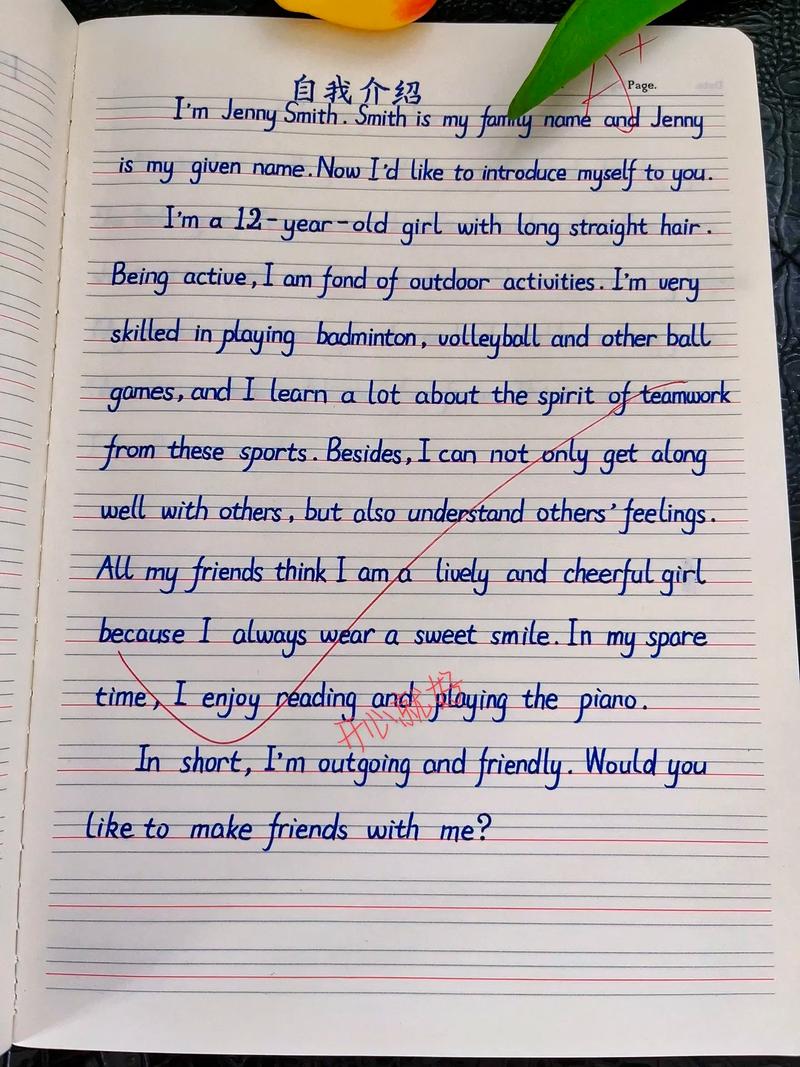 自我介绍
A+
Page.
I'm Jenny Smith. Smith is my family name and Jenny
is my given name. Now I'd like to introduce myself to you.
I'm a 12-year-old girl with long straight hair.
Being active, I am fond of outdoor activities. I'm very
skilled in playing badminton, volleyball and other ball
games, and I learn a lot about the spirit of teamwork
from these sports. Besides, I can not only get along
well with others, but also understand others' feelings.
All my friends think I am a lively and cheerful girl
because I always wear a sweet smile. In my spare
time, I enjoy reading and playing the piano.
开心就好
In short, I'm outgoing and friendly. Would you
like to make friends with me?